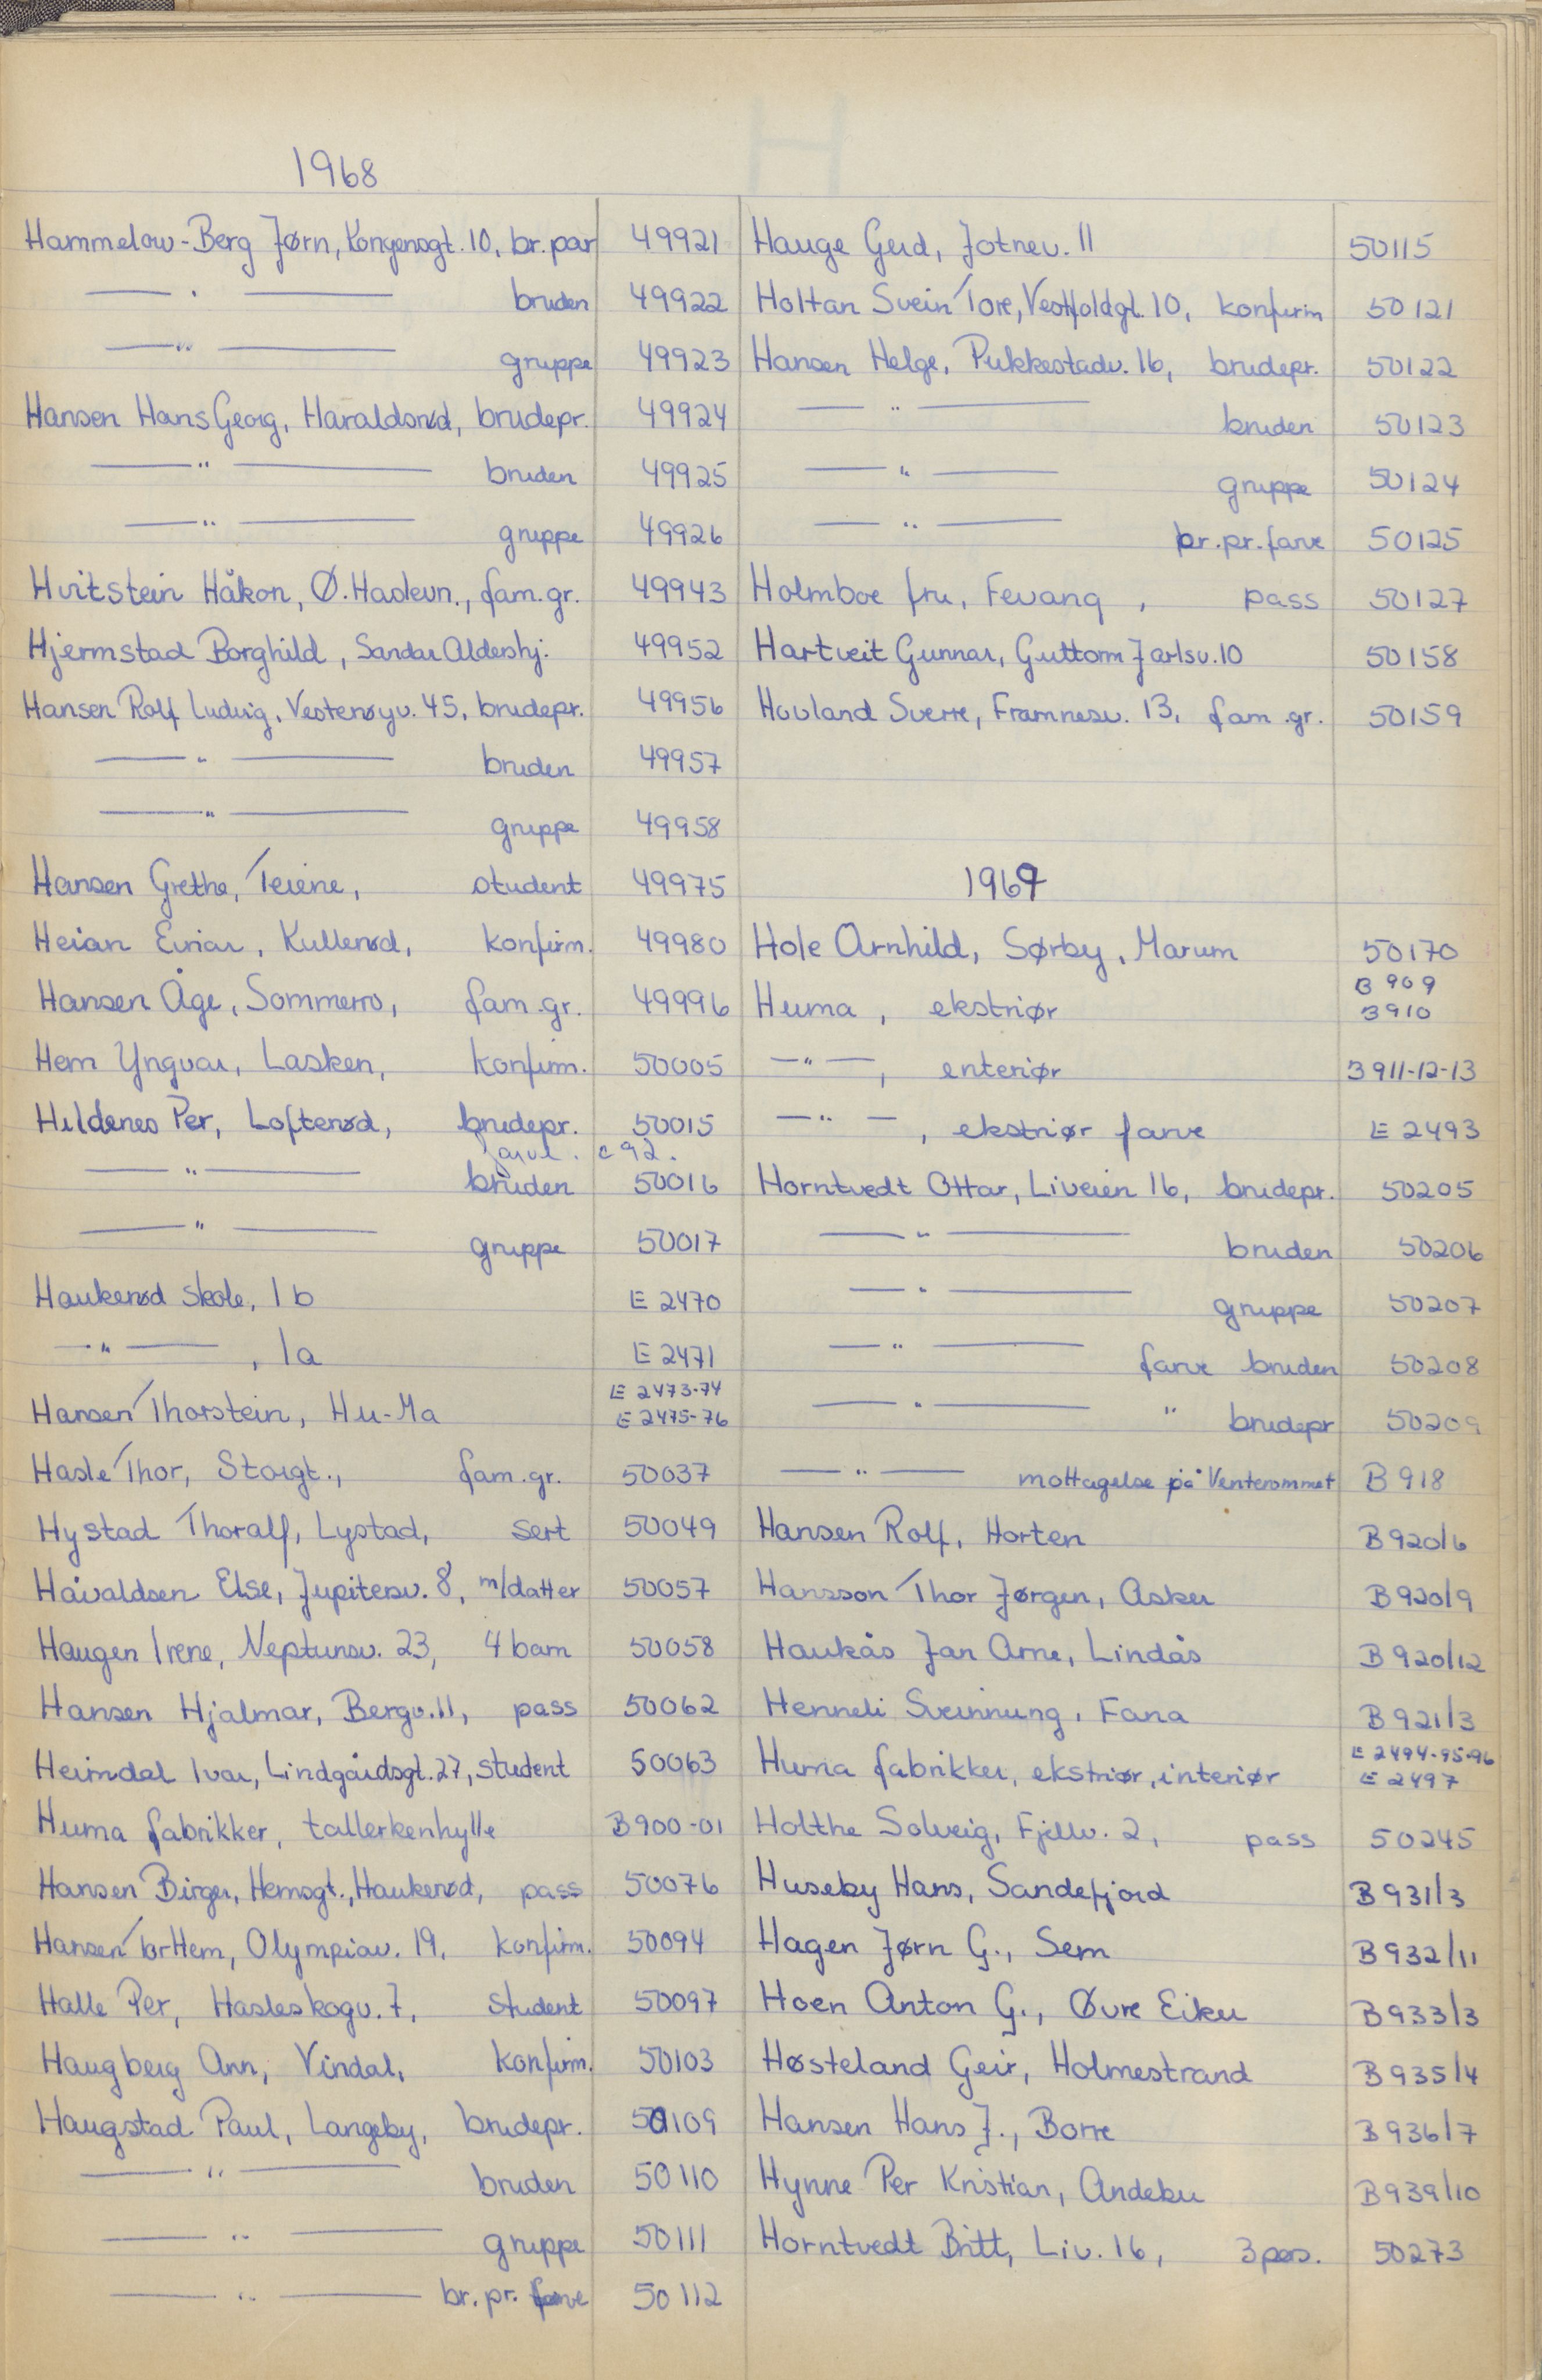 H
1968
Hammelow-Berg Jørn, Kongensgt. 10, br.par 49921
— " — bruden 49922
— " — gruppe 49923
Hansen Hans Georg, Haraldsrød, brudepr. 49924
— " — bruden 49925
— " — gruppe 49926
Hvitstein Håkon, Ø. Haslevn., fam.gr. 49943
Hjermstad Borghild, Sandar Aldershj. 49952
Hansen Rolf Ludvig, Vesterøyv. 45, brudepr. 49956
— " — bruden 49957
— " — gruppe 49958
Hansen Grethe, Teiene, student 49975
Heian Eiviar, Kullerød, konfirm. 49980
Hansen Åge, Sommerro, fam.gr. 49996
Hem Yngvar, Lasken, konfirm. 50005
Hildenes Per, Lofterød, brudepr. 50015
farve. c 92.
— " — bruden 50016
— " — gruppe 50017
Haukerød Skole, 1b E 2470
— " —, 1a E 2471
Hansen Thorstein, Hu-Ma E 2473-74
E 2475-76
Hasle Thor, Storgt., fam.gr. 50037
Hystad Thoralf, Lystad, sert 50049
Håvaldsen Else, Jupitersv. 8, m/datter 50057
Haugen Irene, Neptunsv. 23, 4 barn 50058
Hansen Hjalmar, Bergv. 11, pass 50062
Heimdal Ivar, Lindgårdsgt. 27, student 50063
Huma fabrikker, tallerkenhylle B 900-01
Hansen Birger, Hemsgt., Haukerød, pass 50076
Hansen Tor Hem, Olympiav. 19, konfirm. 50094
Halle Per, Hasleskogv. 7, student 50097
Haugberg Ann, Vindal, konfirm. 50103
Haugstad Paul, Langeby, brudepr. 50109
— " — bruden 50110
— " — gruppe 50111
— " — br.pr. farve 50112
Hauge Gerd, Jotnev. 11 50115
Holtan Svein Tore, Vestfoldgt. 10, konfirm 50121
Hansen Helge, Pukkestadv. 16, brudepr. 50122
— " — bruden 50123
— " — gruppe 50124
— " — br.pr.farve 50125
Holmboe fru, Fevang, pass 50127
Hartveit Gunnar, Guttorm Jarlsv. 10 50158
Hovland Sverre, Framnesv. 13, fam.gr. 50159
1969
Hole Arnhild, Sørby, Marum 50170
Huma, ekstriør B 909
B 910
— " —, enteriør B 911-12-13
— " —, ekstriør farve E 2493
Horntvedt Ottar, Liveien 16, brudepr. 50205
— " — bruden 50206
— " — gruppe 50207
— " — farve bruden 50208
— " — " brudepr 50209
— " — mottagelse på Venterommet B 918
Hansen Rolf, Horten B 920/6
Hansson Thor Jørgen, Asker B 920/9
Haukås Jan Arne, Lindås B 920/12
Henneli Sveinnung, Fana B 921/3
Huma fabrikker, ekstriør, interiør E 2494-95-96
E 2497
Holthe Solveig, Fjellv. 2, pass 50245
Huseby Hans, Sandefjord B 931/3
Hagen Jørn G., Sem B 932/11
Hoen Anton G., Øvre Eiker B 933/3
Høsteland Geir, Holmestrand B 935/4
Hansen Hans J., Borre B 936/7
Hynne Per Kristian, Andebu B 939/10
Horntvedt Britt, Liv. 16, 3 pers. 50273